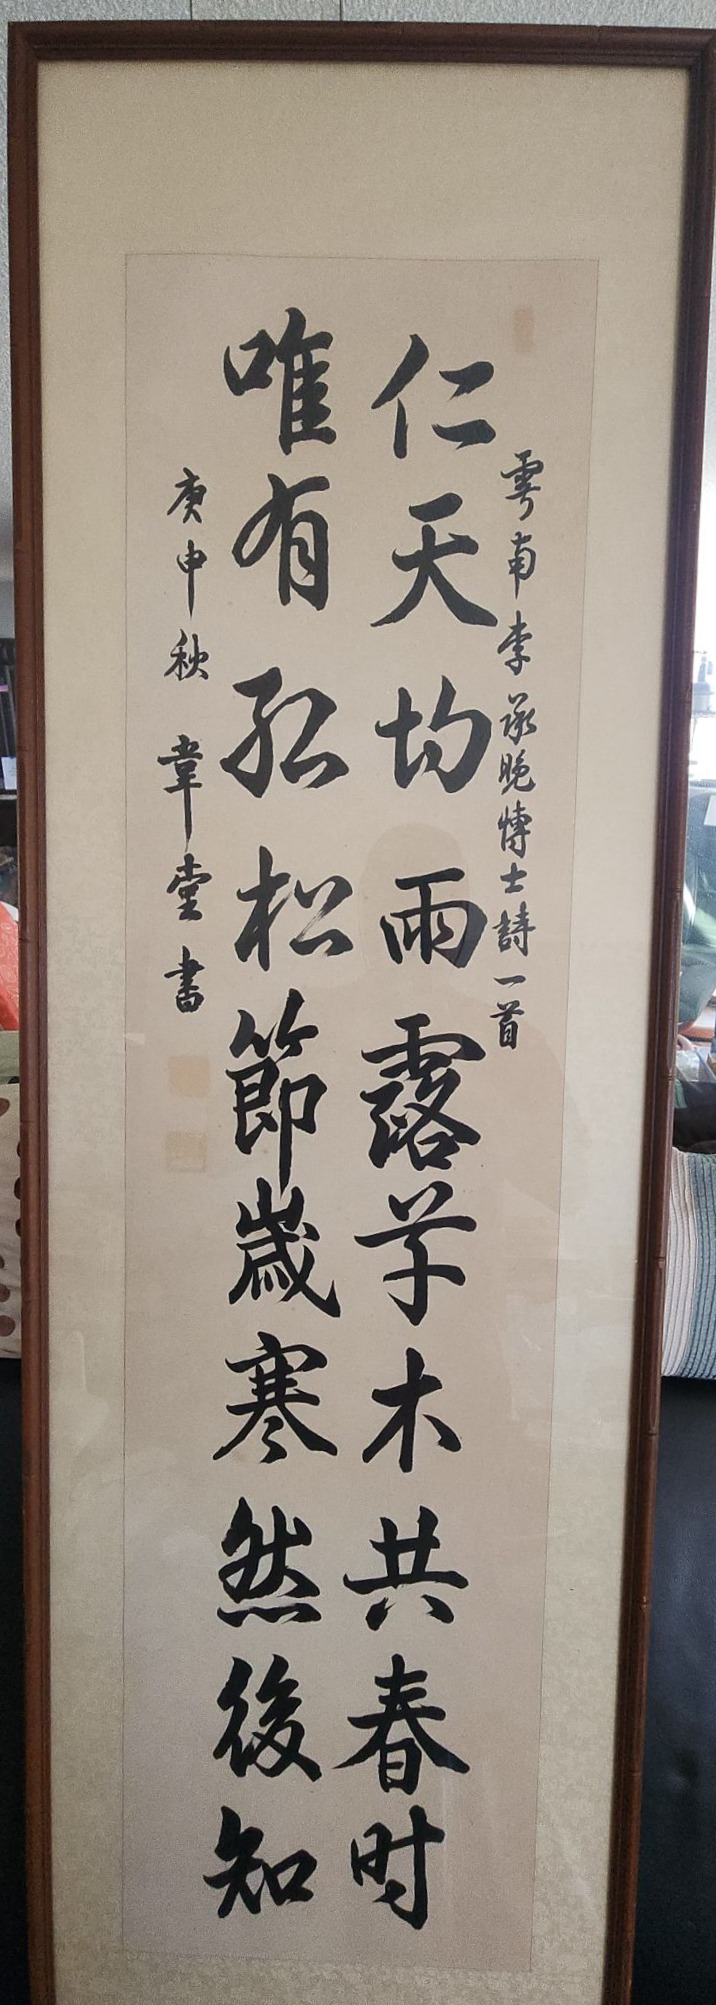 雩南李承晚愽士詩一首
仁天均雨露草木共春时
唯有孤松節歲寒然後知
庚申秋 韋堂書